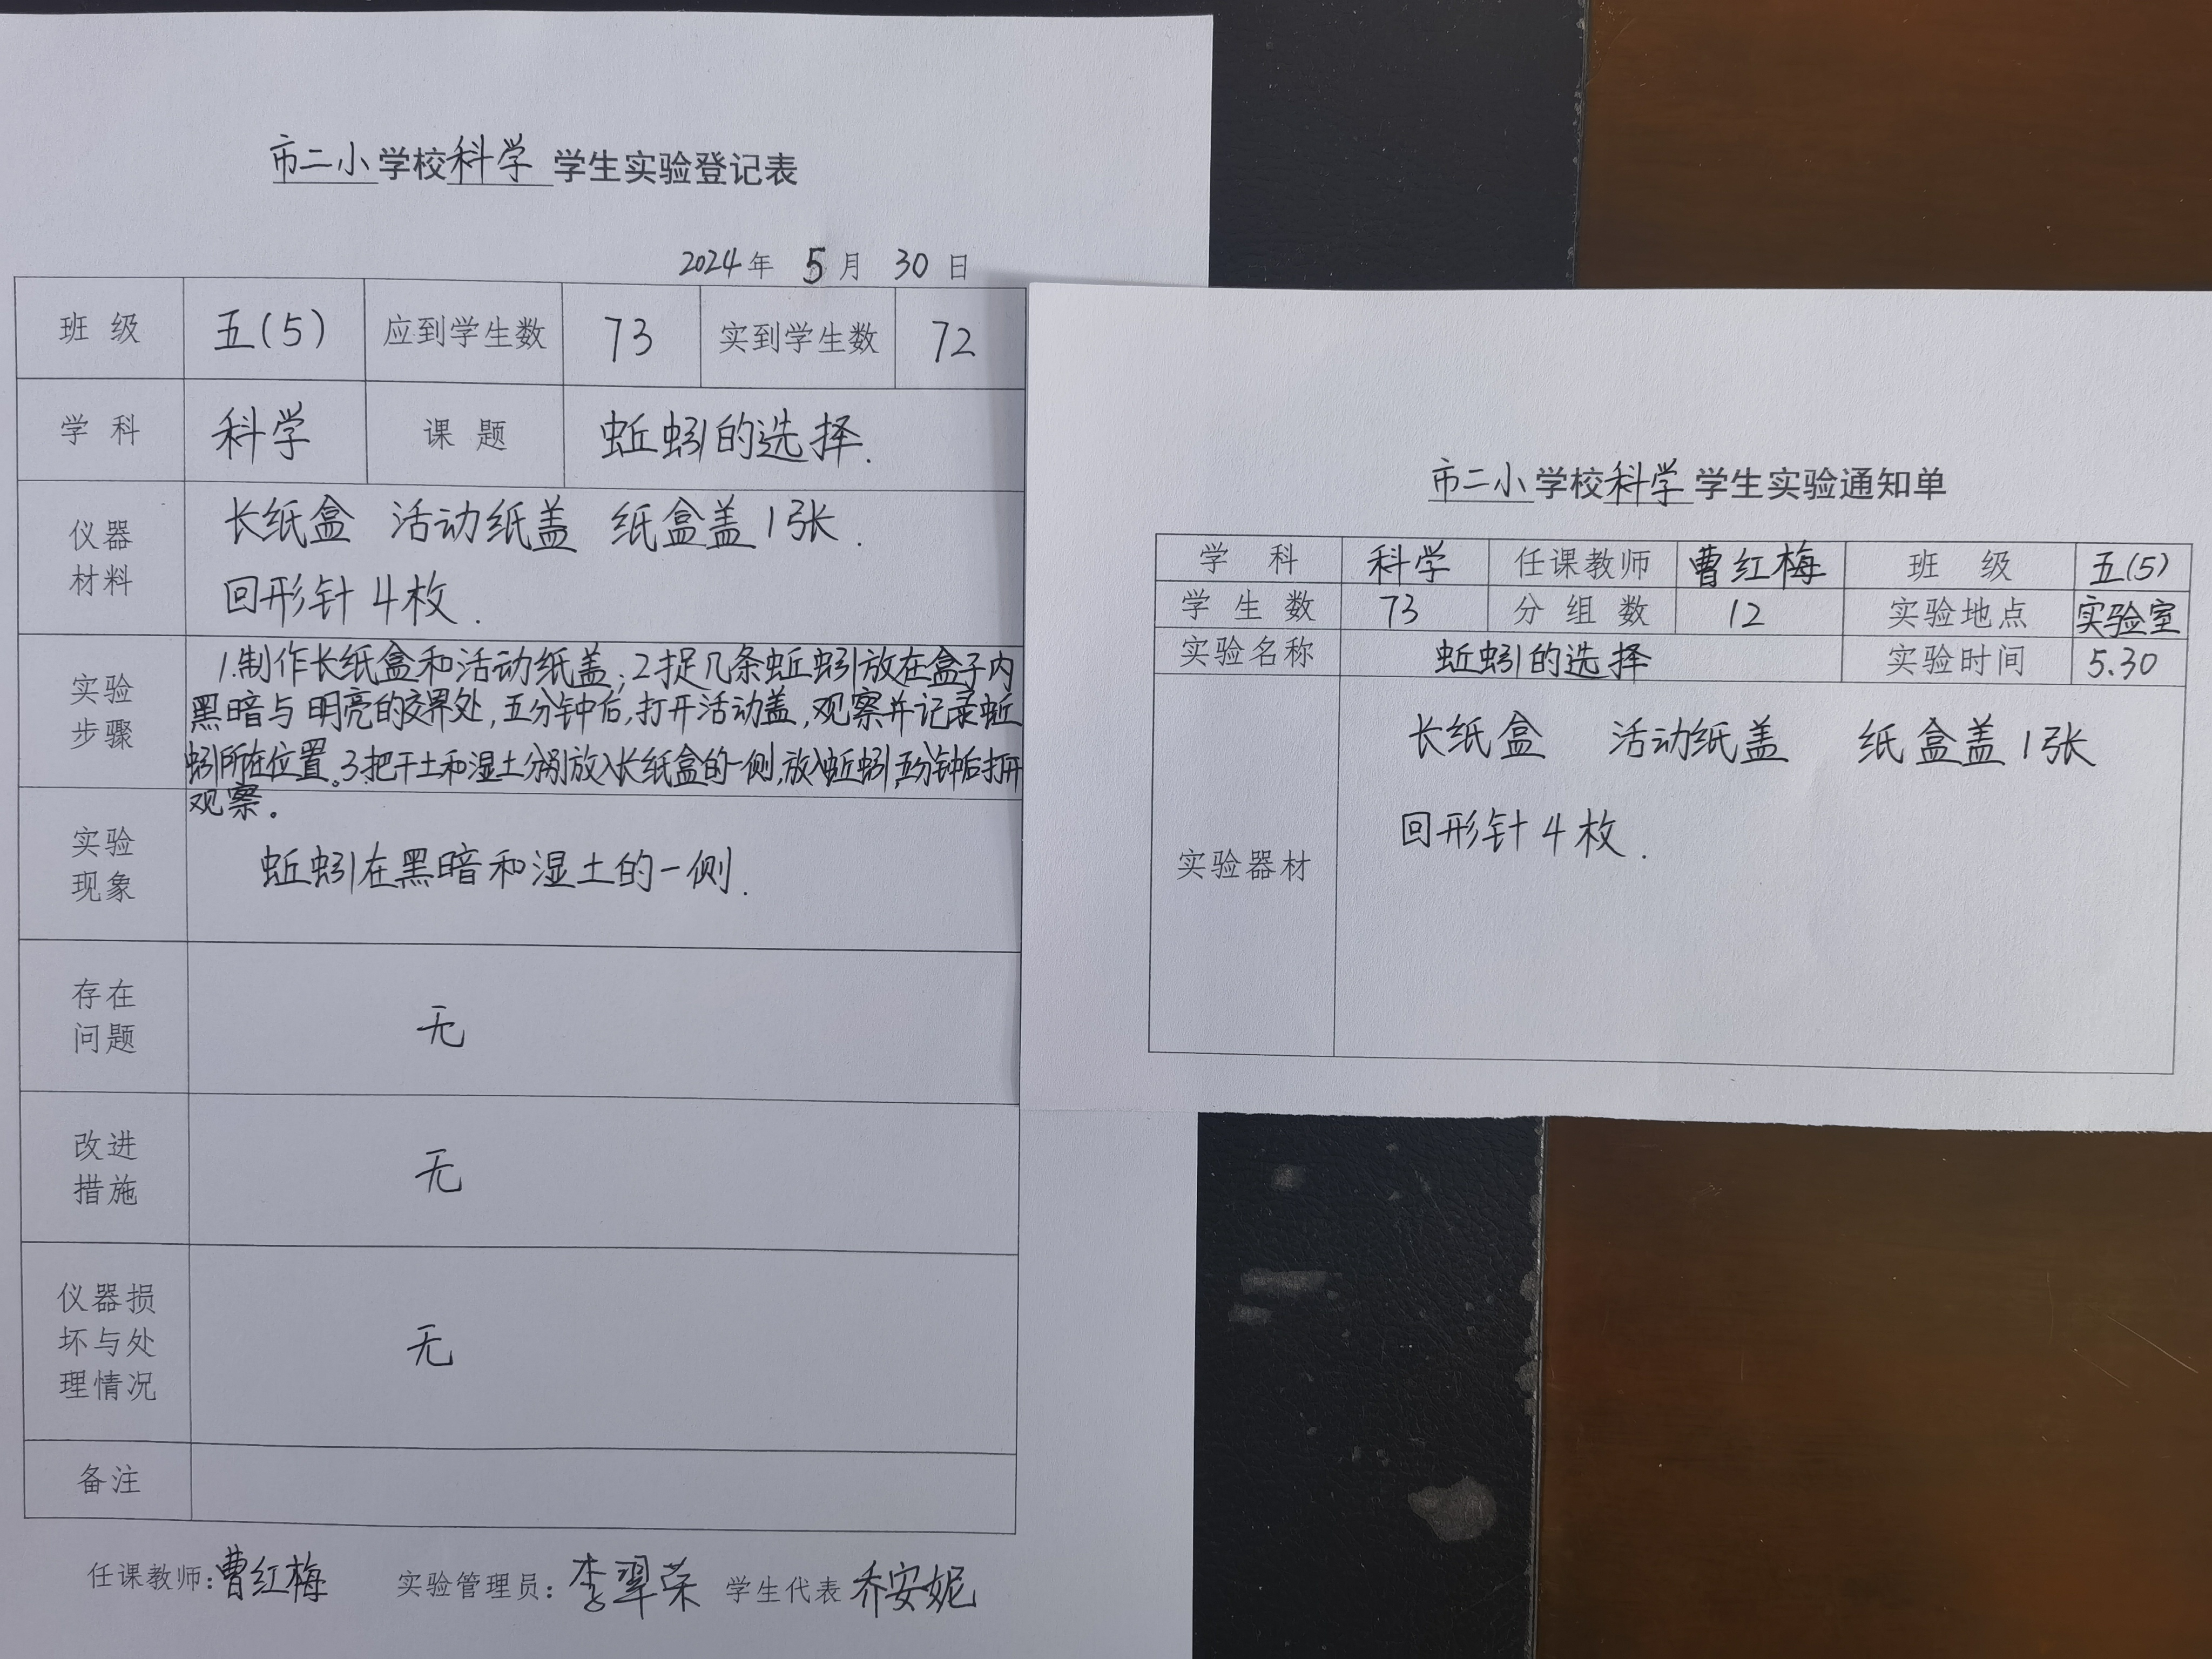 市二小学校科学 学生实验登记表
2024年 5月 30日
班级 五(5) 应到学生数 73 实到学生数 72
学科 科学 课题 蚯蚓的选择.
仪器
材料
长纸盒 活动纸盖 纸盒盖1张.
回形针4枚.
实验
步骤
1.制作长纸盒和活动纸盖;2捉几条蚯蚓放在盒子内
黑暗与明亮的交界处,五分钟后,打开活动盖,观察并记录蚯
蚓所在位置。3.把干土和湿土分别放入长纸盒的一侧,放入蚯蚓,五分钟后打开
观察。
实验
现象
蚯蚓在黑暗和湿土的一侧.
存在
问题
无
改进
措施
无
仪器损
坏与处
理情况
无
备注
任课教师:曹红梅 实验管理员:李翠荣 学生代表 乔安妮
市二小学校科学 学生实验通知单
学科 科学 任课教师 曹红梅 班级 五(5)
学生数 73 分组数 12 实验地点 实验室
实验名称 蚯蚓的选择 实验时间 5.30
实验器材
长纸盒 活动纸盖 纸盒盖1张
回形针4枚.